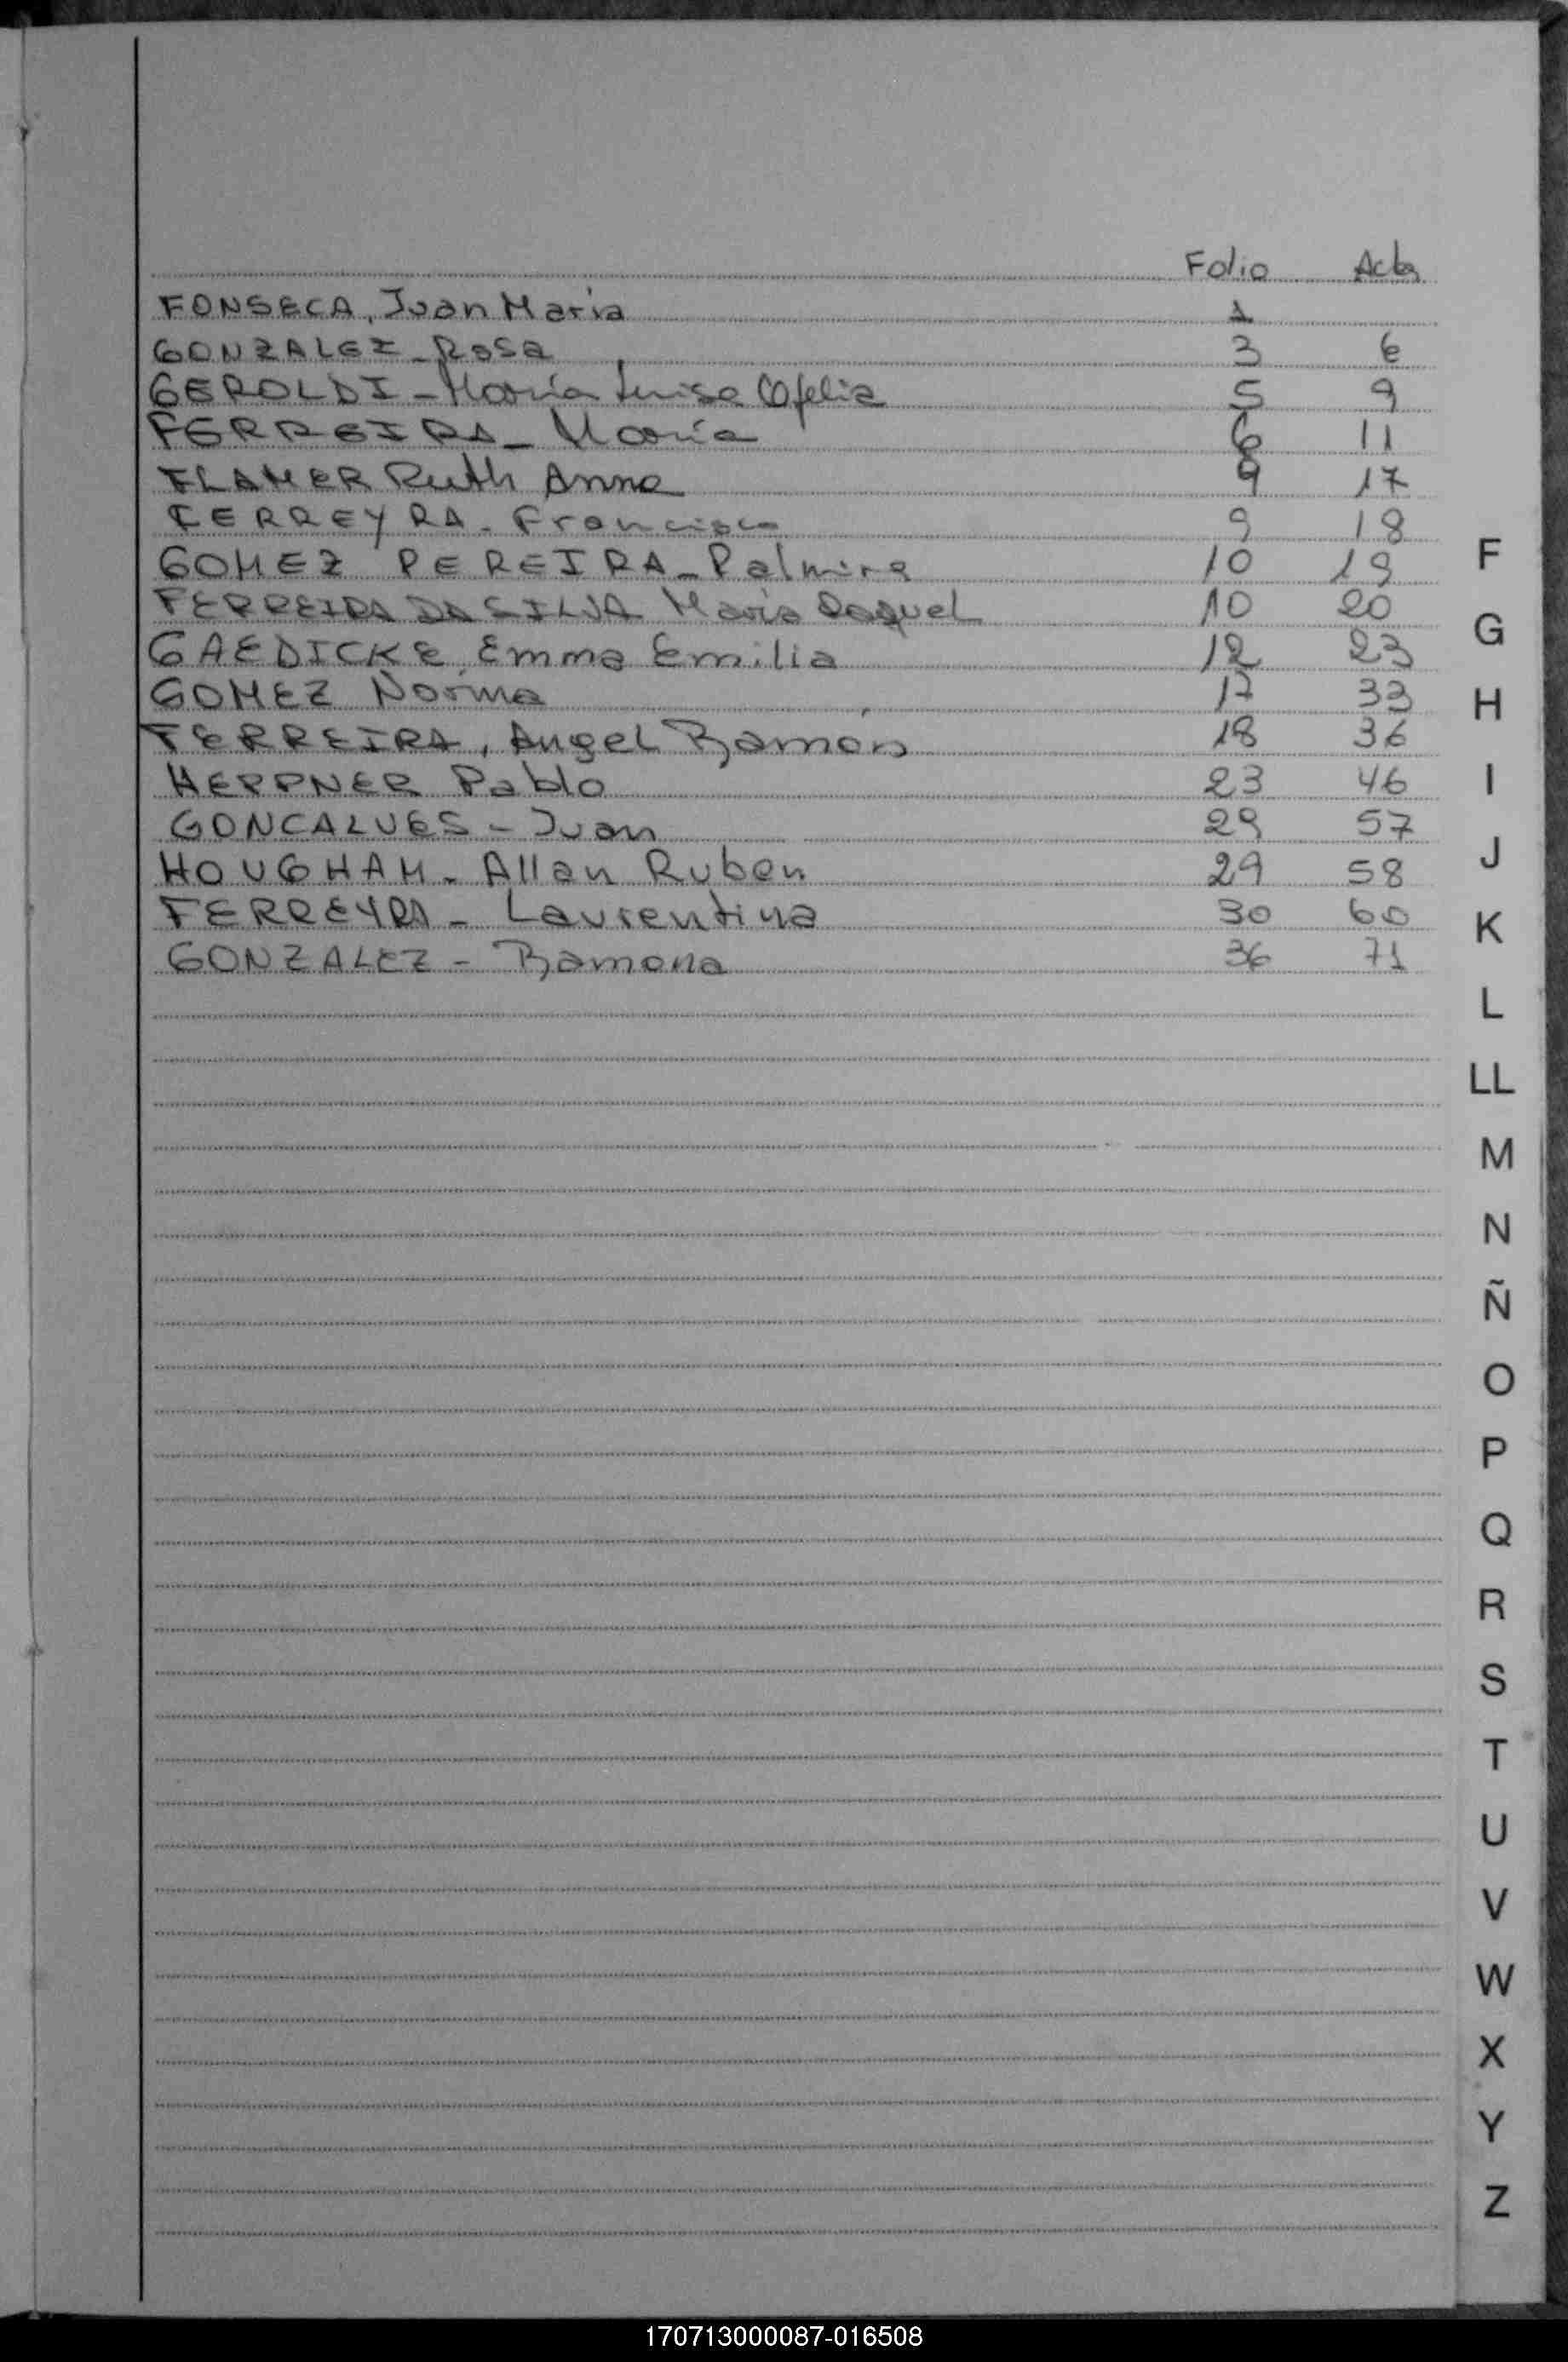 Folio Acta
FONSECA, Juan Maria 1
GONZALEZ - Rosa 3 6
GEROLDI - María Luisa Ofelia 5 9
FERREIRA - María 6 11
FLAMER Ruth Anna 9 17
FERREYRA - Francisco 9 18
GOMEZ PEREIRA - Palmira 10 19
FERREIRA DA SILVA Maria Raquel 10 20
GAEDICKE Emma Emilia 12 23
GOMEZ Norma 17 33
FERREIRA, Angel Ramon 18 36
HEPPNER Pablo 23 46
GONCALVES - Juan 29 57
HOUGHAM - Allan Ruben 29 58
FERREYRA - Laurentina 30 60
GONZALEZ - Ramona 36 71
F
G
H
I
J
K
L
LL
M
N
Ñ
O
P
Q
R
S
T
U
V
W
X
Y
Z
170713000087-016508